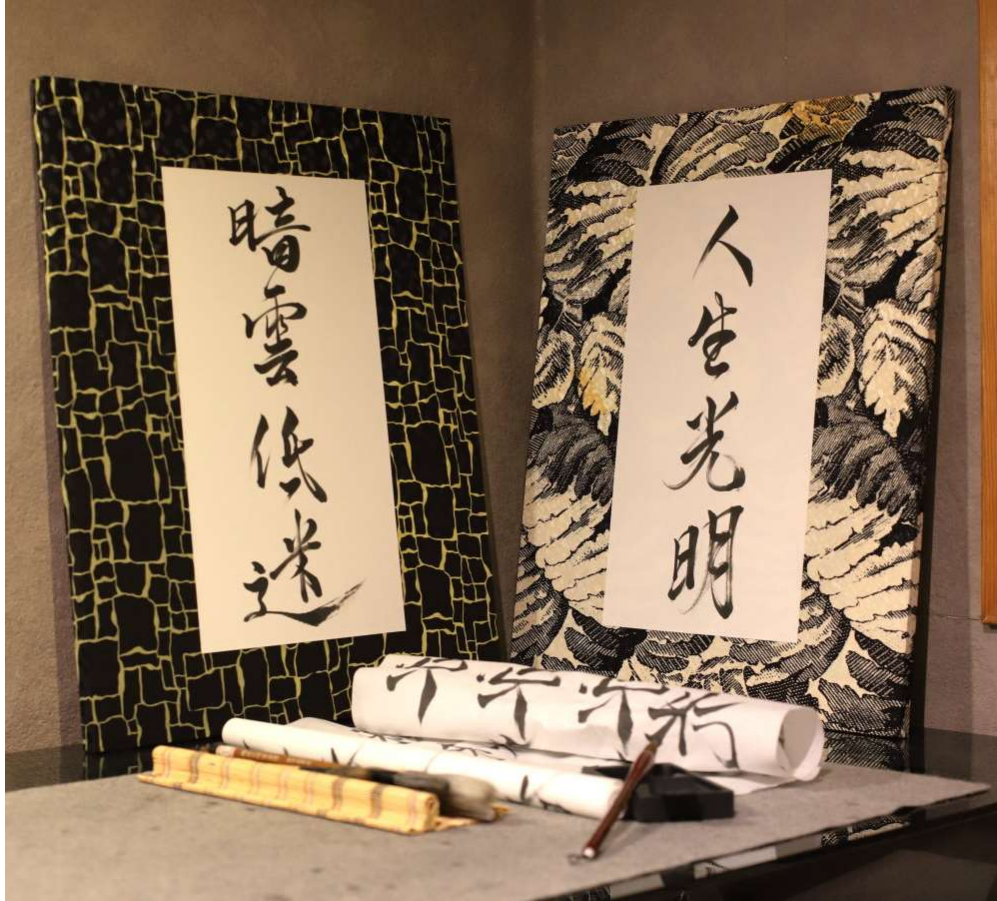 暗雲低迷
人生光明